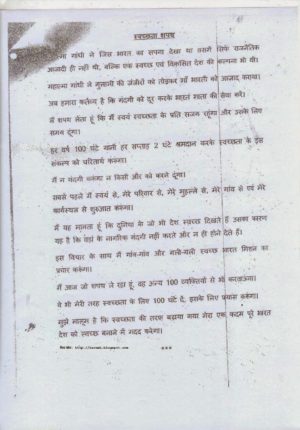 स्वच्छता शपथ
महात्मा गांधी ने जिस भारत का सपना देखा था उसमें सिर्फ राजनैतिक
आजादी ही नहीं थी, बल्कि एक स्वच्छ एवं विकसित देश की कल्पना भी थी।
महात्मा गांधी ने गुलामी की जंजीरों को तोड़कर माँ भारती को आजाद कराया।
अब हमारा कर्तव्य है कि गंदगी को दूर करके भारत माता की सेवा करें।
मैं शपथ लेता हूं कि मैं स्वयं स्वच्छता के प्रति सजग रहूंगा और उसके लिए
समय दूंगा।
हर वर्ष 100 घंटे यानी हर सप्ताह 2 घंटे श्रमदान करके स्वच्छता के इस
संकल्प को चरितार्थ करूंगा।
मैं न गंदगी करूंगा न किसी और को करने दूंगा।
सबसे पहले मैं स्वयं से, मेरे परिवार से, मेरे मुहल्ले से, मेरे गांव से एवं मेरे
कार्यस्थल से शुरुआत करूंगा।
मैं यह मानता हूं कि दुनिया के जो भी देश स्वच्छ दिखते हैं उसका कारण
यह है कि वहां के नागरिक गंदगी नहीं करते और न ही होने देते हैं।
इस विचार के साथ मैं गांव-गांव और गली-गली स्वच्छ भारत मिशन का
प्रचार करूंगा।
मैं आज जो शपथ ले रहा हूं, वह अन्य 100 व्यक्तियों से भी करवाऊंगा।
वे भी मेरी तरह स्वच्छता के लिए 100 घंटे दें, इसके लिए प्रयास करूंगा।
मुझे मालूम है कि स्वच्छता की तरफ बढ़ाया गया मेरा एक कदम पूरे भारत
देश को स्वच्छ बनाने में मदद करेगा।
***